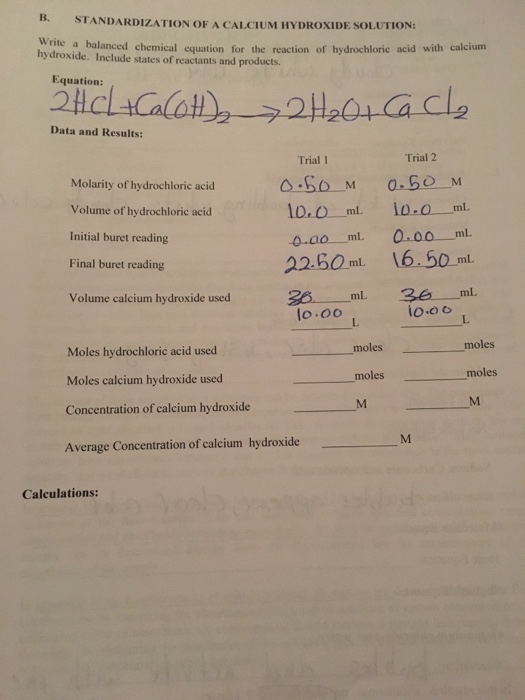 B. STANDARDIZATION OF A CALCIUM HYDROXIDE SOLUTION:
Write a balanced chemical equation for the reaction of hydrochloric acid with calcium
hydroxide. Include states of reactants and products.
Equation:
2HCl + Ca(OH)2 → 2H2O + CaCl2
Data and Results:
Trial 1 Trial 2
Molarity of hydrochloric acid 0.50 M 0.50 M
Volume of hydrochloric acid 10.0 mL 10.0 mL
Initial buret reading 0.00 mL 0.00 mL
Final buret reading 22.50 mL 16.50 mL
Volume calcium hydroxide used 36 mL 36 mL
10.00 L 10.00 L
Moles hydrochloric acid used moles moles
Moles calcium hydroxide used moles moles
Concentration of calcium hydroxide M M
Average Concentration of calcium hydroxide M
Calculations: